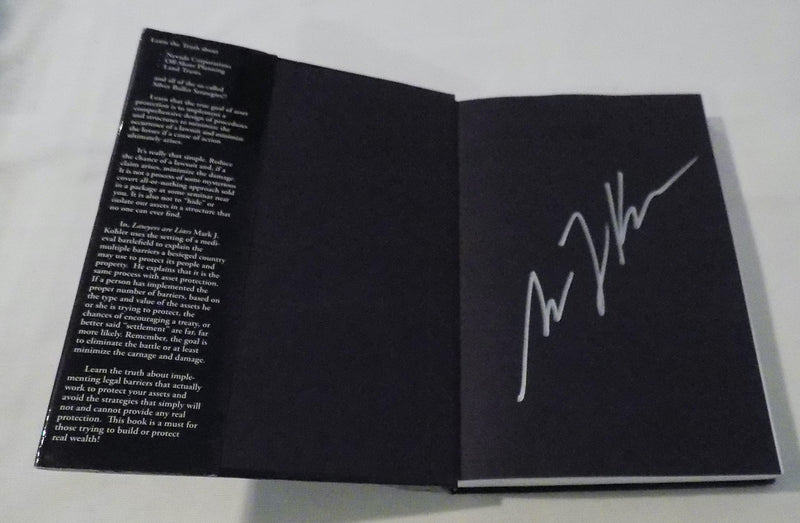 Learn the Truth about
Nevada Corporations
Off-Shore Planning
Land Trusts
and all of the so-called
Silver Bullet Strategies!!
Learn that the true goal of asset
protection is to implement a
comprehensive design of procedures
and structures to minimize the
occurrence of a lawsuit and minimize
the losses if a cause of action
ultimately arises.
It's really that simple. Reduce
the chance of a lawsuit and, if a
claim arises, minimize the damage.
It is not a process of some mysterious
covert all-or-nothing approach sold
in a package at some seminar near
you. It is also not to "hide" or
isolate our assets in a structure that
no one can ever find.
In, Lawyers are Liars Mark J.
Kohler uses the setting of a medi-
eval battlefield to explain the
multiple barriers a besieged country
may use to protect its people and
property. He explains that it is the
same process with asset protection.
If a person has implemented the
proper number of barriers, based on
the type and value of the assets he
or she is trying to protect, the
chances of encouraging a treaty, or
better said "settlement" are far, far
more likely. Remember, the goal is
to eliminate the battle or at least
minimize the carnage and damage.
Learn the truth about imple-
menting legal barriers that actually
work to protect your assets and
avoid the strategies that simply will
not and cannot provide any real
protection. This book is a must for
those trying to build or protect
real wealth!